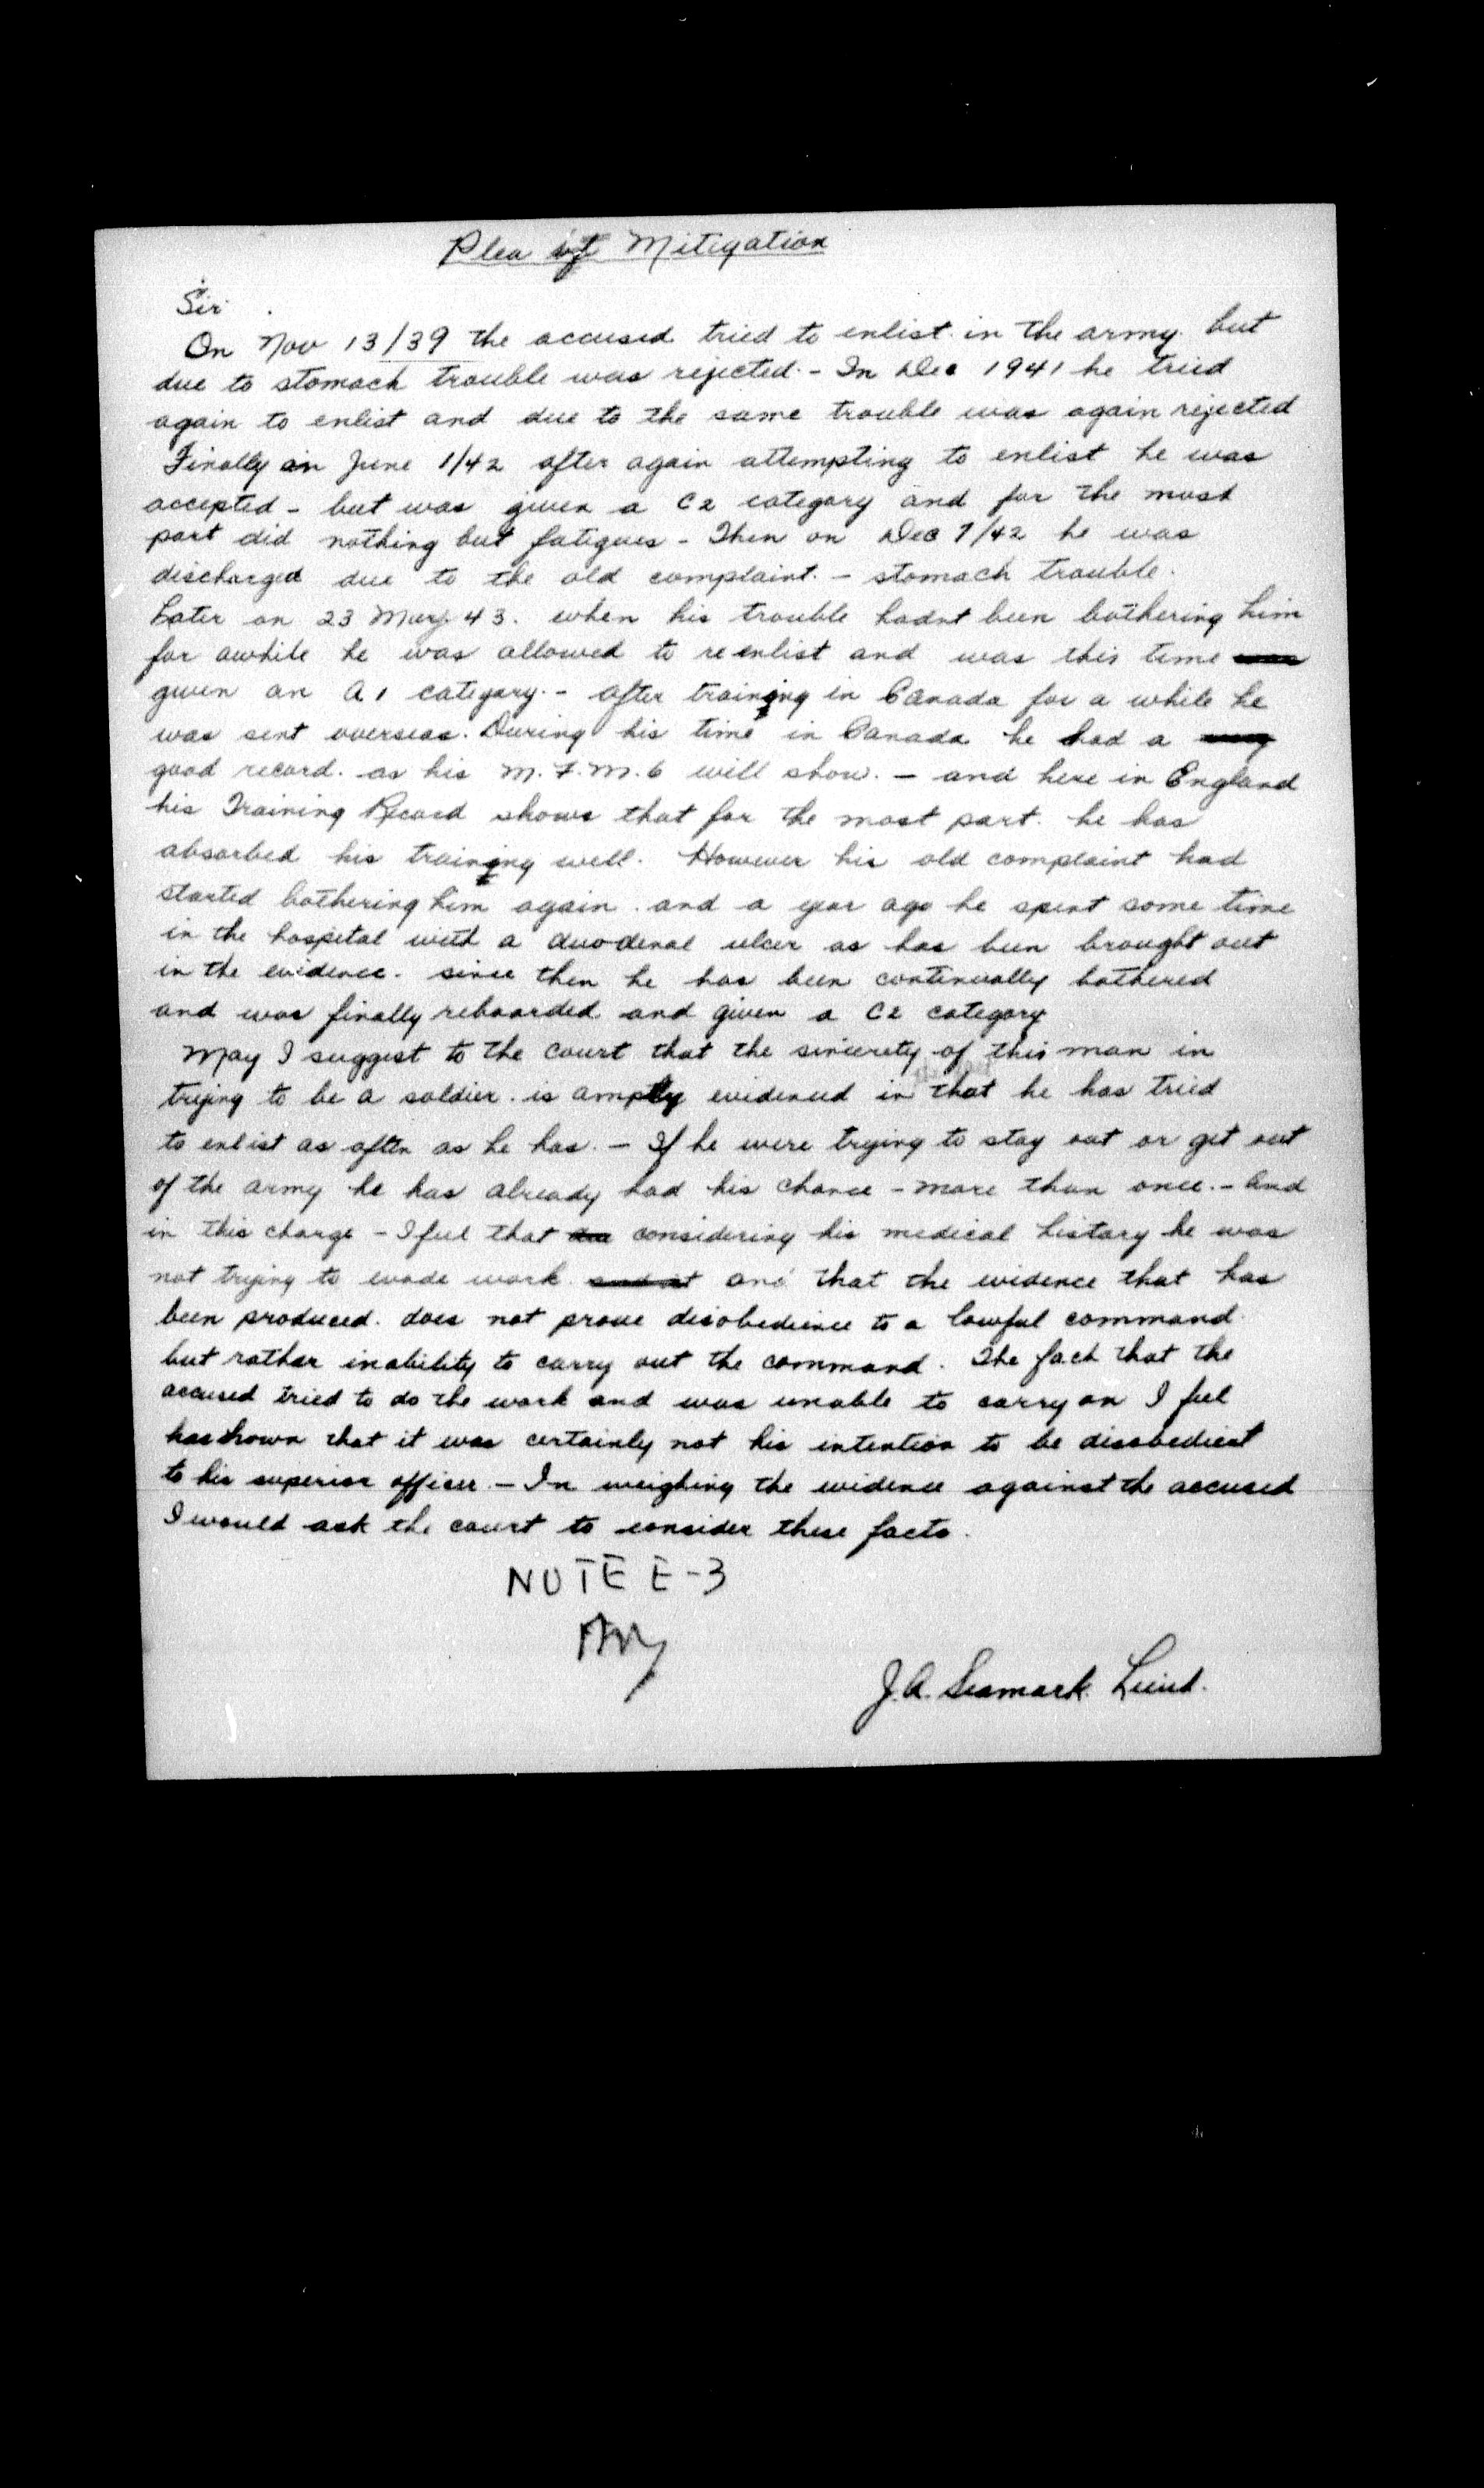 Plea of Mitigation
Sir
On Nov 13/39 the accused tried to enlist in the army but
due to stomach trouble was rejected. - In Dec 1941 he tried
again to enlist and due to the same trouble was again rejected
Finally on June 1/42 after again attempting to enlist he was
accepted - but was given a C2 category and for the most
part did nothing but fatigues - Then on Dec 7/42 he was
discharged due to the old complaint. - stomach trouble.
Later on 23 43. when his trouble hadnt been bothering him
for awhile he was allowed to re enlist and was this time
given an A1 category. - after training in Canada for a while he
was sent overseas. During his time in Canada he had a
good record. as his M.F.M.6 will show. - and here in England
his Training Record shows that for the most part. he has
absorbed his training well. However his old complaint had
started bothering him again. and a year ago he spent some time
in the hospital with a duodenal ulcer as has been brought out
in the evidence. since then he has been continually bothered
and was finally reboarded and given a C2 category
May I suggest to the court that the sincerety of this man in
trying to be a soldier. is amply evidenced in that he has tried
to enlist as often as he has. - If he were trying to stay out or get out
of the army he has already had his chance - more than once. - And
in this charge - I feel that considering his medical history he was
not trying to evade work and that the evidence that has
been produced. does not prove disobedience to a lawful command
but rather inability to carry out the command. The fact that the
accused tried to do the work and was unable to carry on I feel
has shown that it was certainly not his intention to be disobedient
to his superior officer. - In weighing the evidence against the accused
I would ask the court to consider these facts.
NOTE E-3
J.A. Seamark. Lieut.